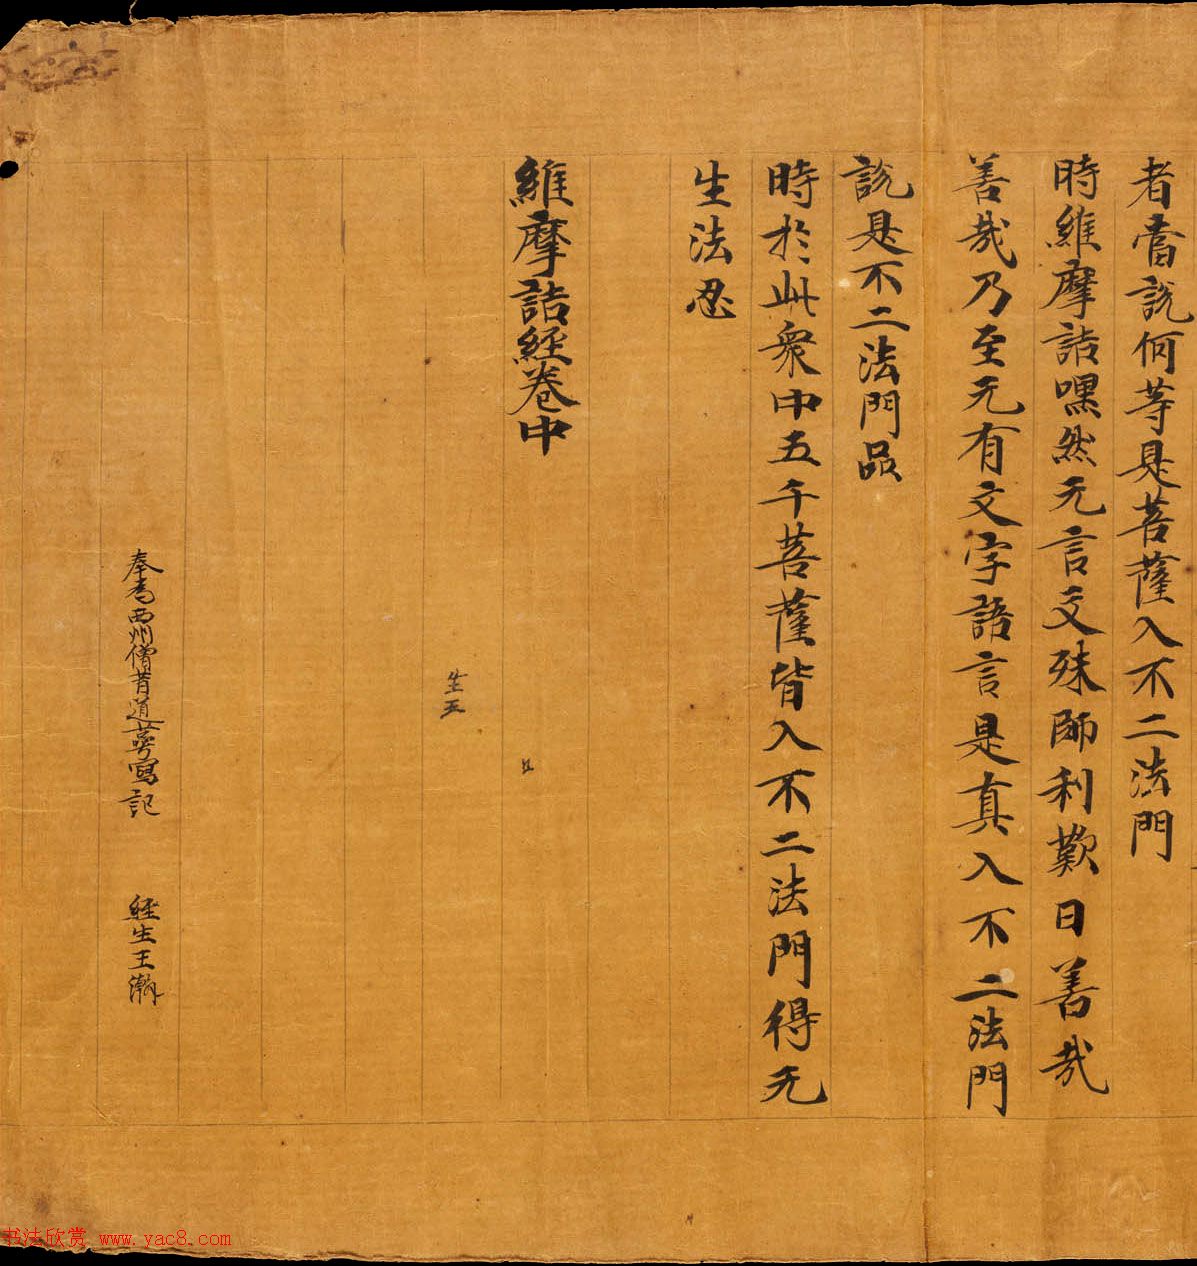 者當說何等是菩薩入不二法門
時維摩詰嘿然无言文殊師利歎曰善哉
善哉乃至无有文字語言是真入不二法門
說是不二法門品
時於此衆中五千菩薩皆入不二法門得无
生法忍
維摩詰經卷中
生五
奉為西州僧昔道萼寫記 経生王瀚
书法欣赏 www.yac8.com